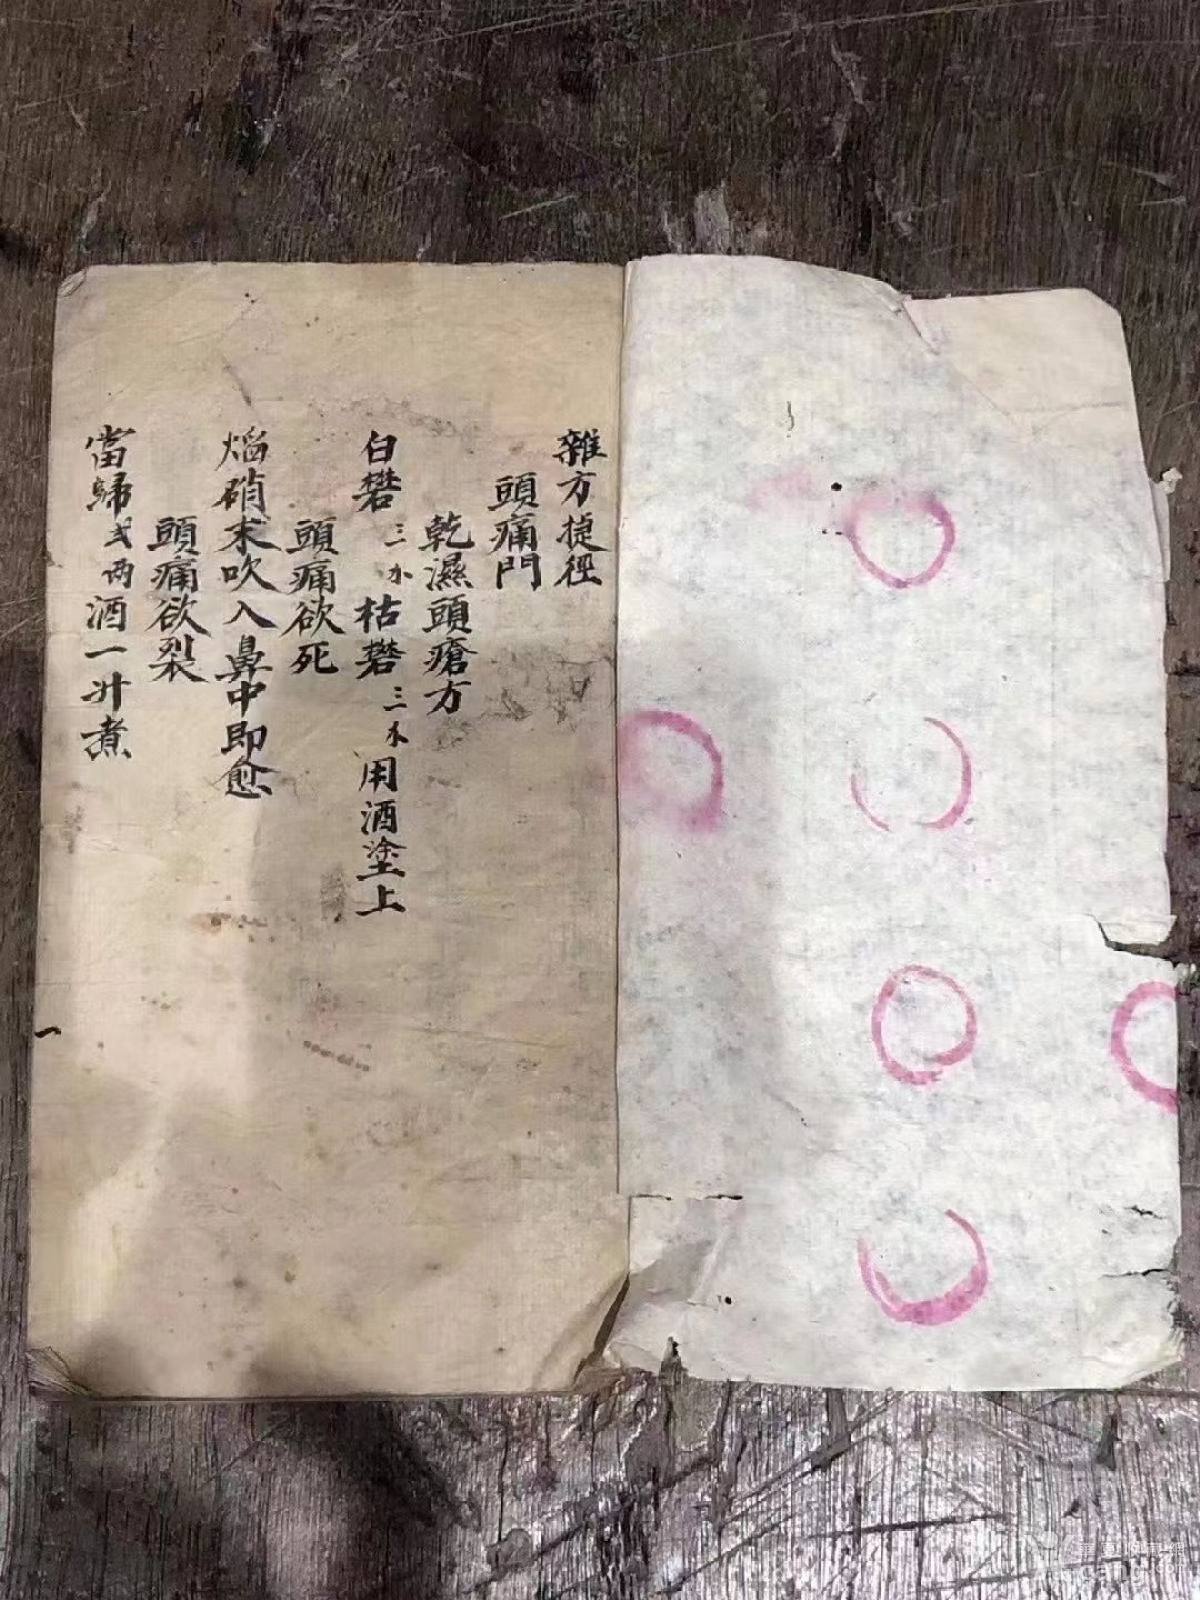 雜方捷徑
頭痛門
乾濕頭瘡方
白礬三小枯礬三小用酒塗上
頭痛欲死
焰硝末吹入鼻中即愈
頭痛欲裂
當歸弍两酒一升煮
一